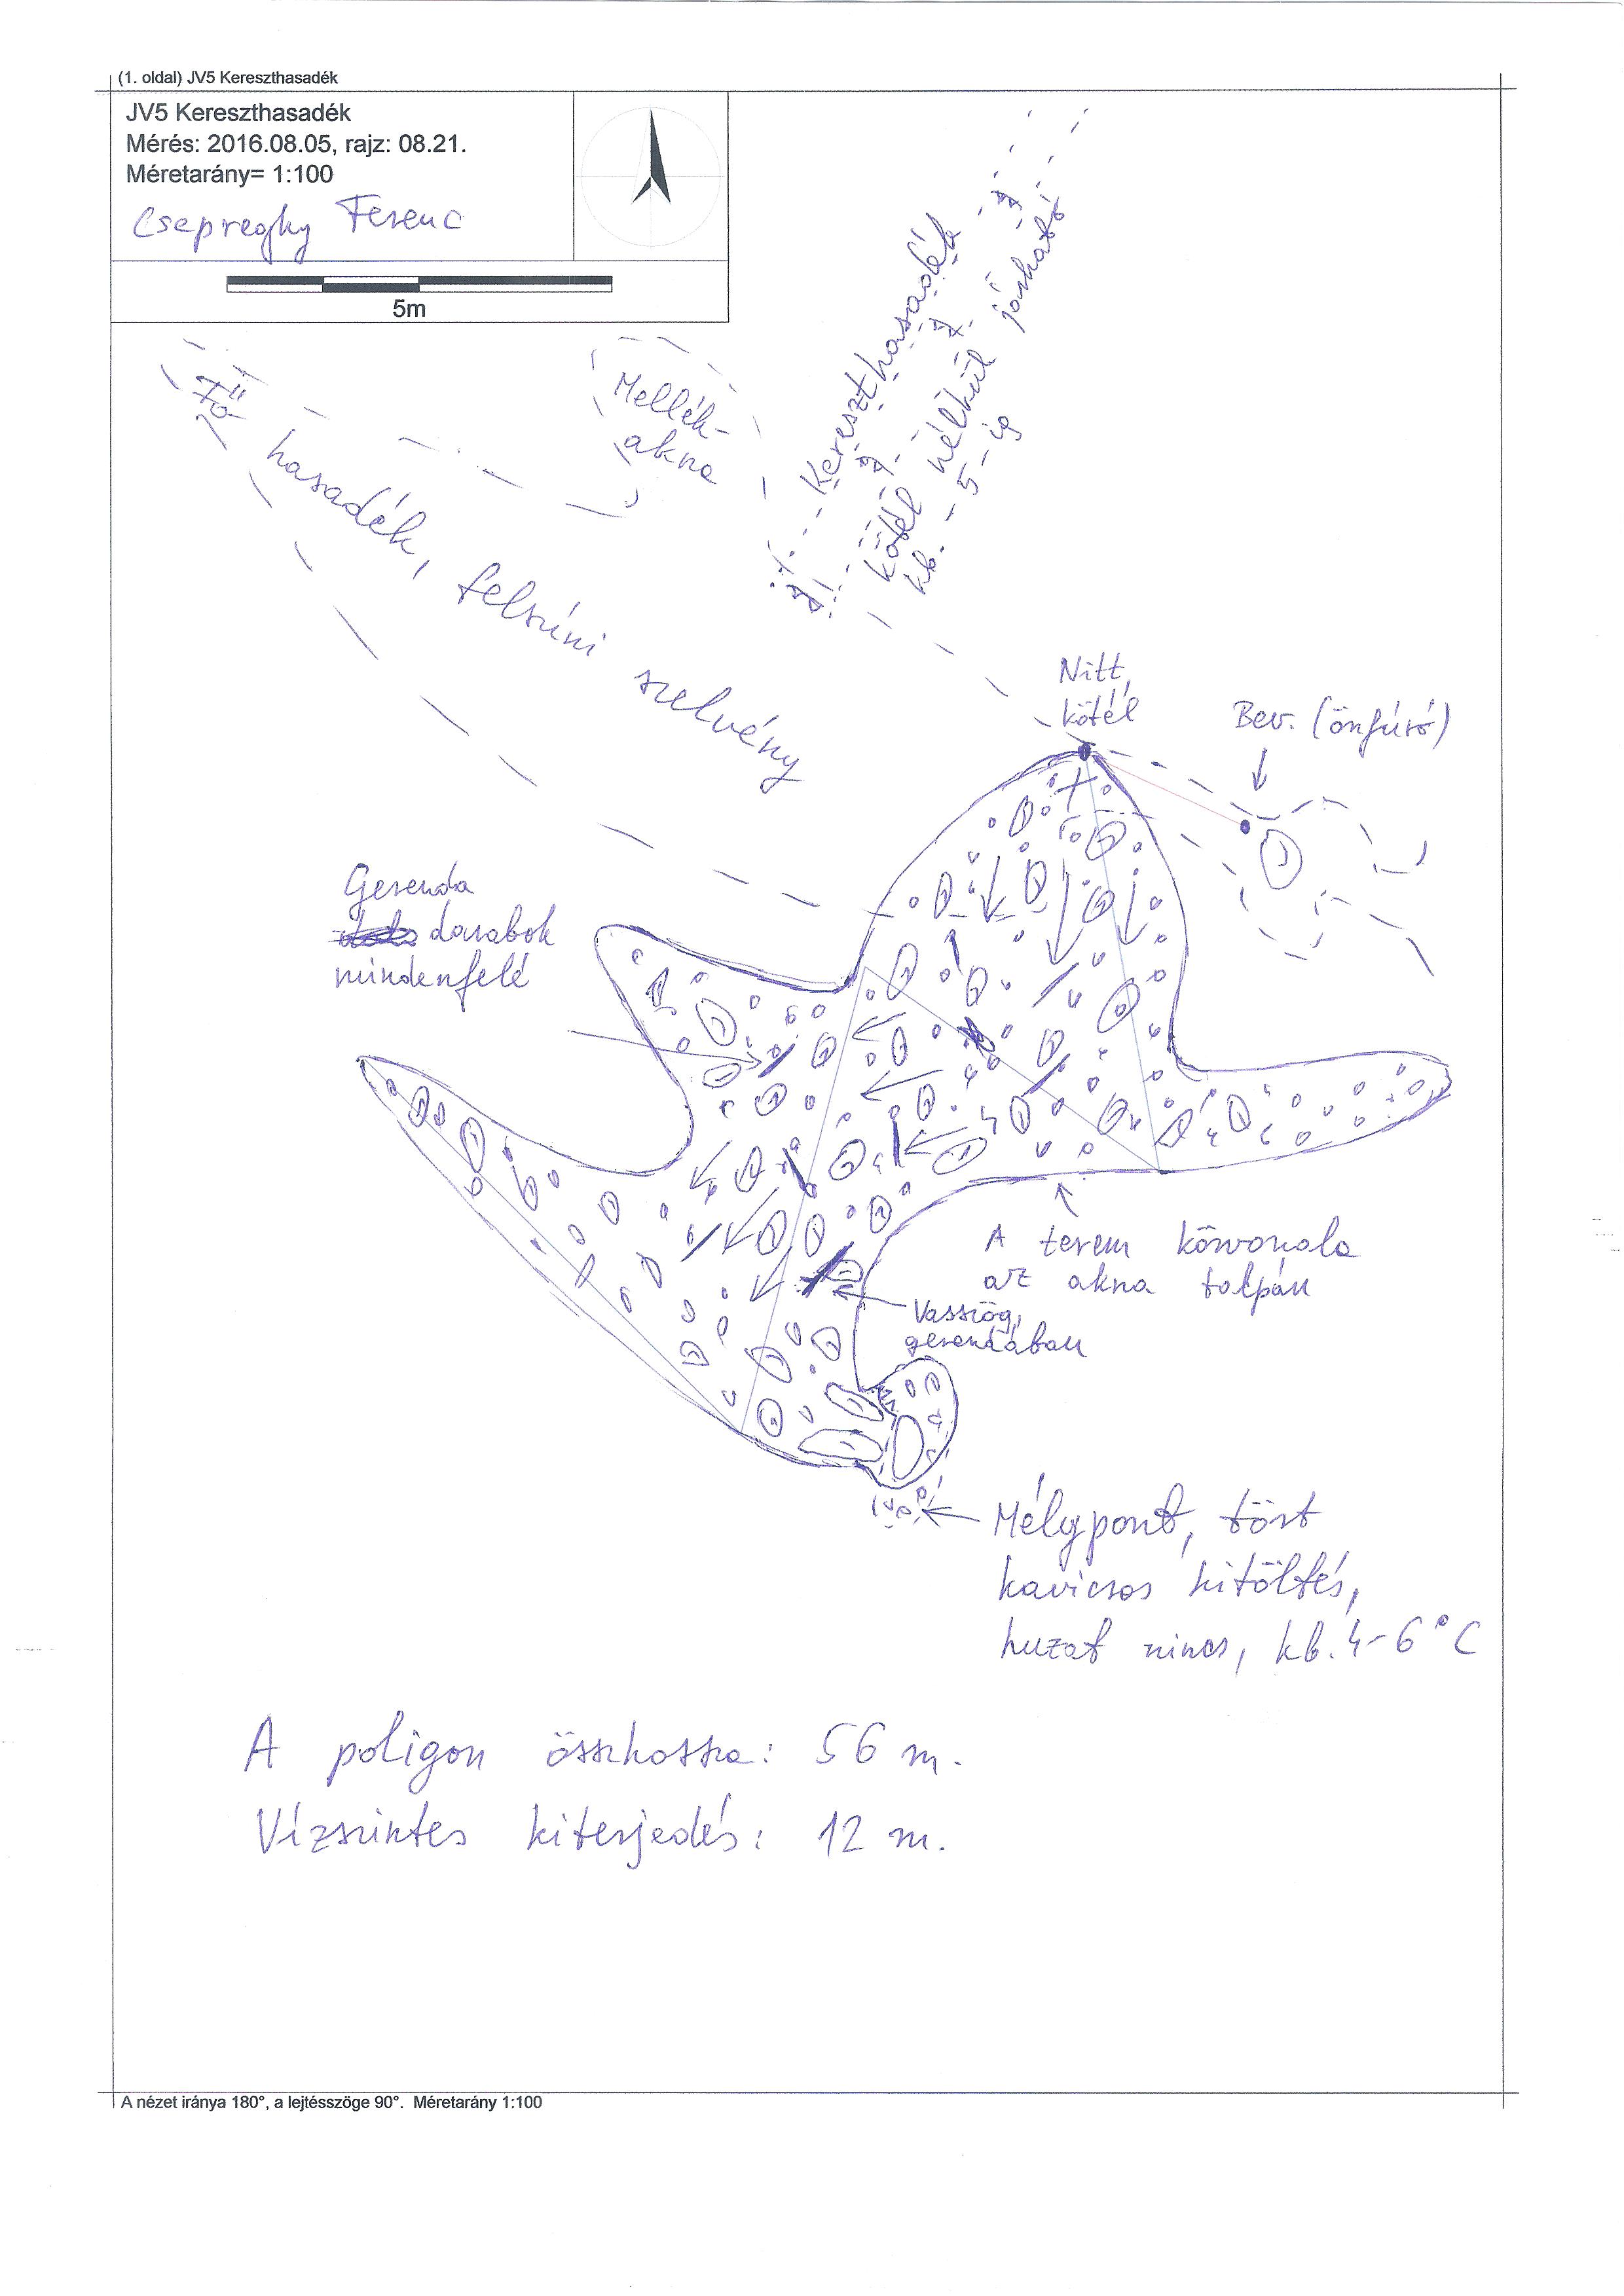 (1. oldal) JV5 Kereszthasadék
JV5 Kereszthasadék
Mérés: 2016.08.05, rajz: 08.21.
Méretarány= 1:100
Csepreghy Ferenc
5m
Fő hasadék, felszíni szelvény
Mellék-
akna
Kereszthasadék
kötél nélkül járható
kb. -5-ig
Nitt,
kötél
Bev. (önfúró)
Gerenda
darabok
mindenfelé
A terem körvonala
az akna talpán
Vasszög,
gerendában
Mélypont, tört
kavicsos kitöltés,
huzat nincs, kb. 4-6°C
A poligon összhossza: 56 m.
Vízszintes kiterjedés: 12 m.
A nézet iránya 180°, a lejtésszöge 90°. Méretarány 1:100